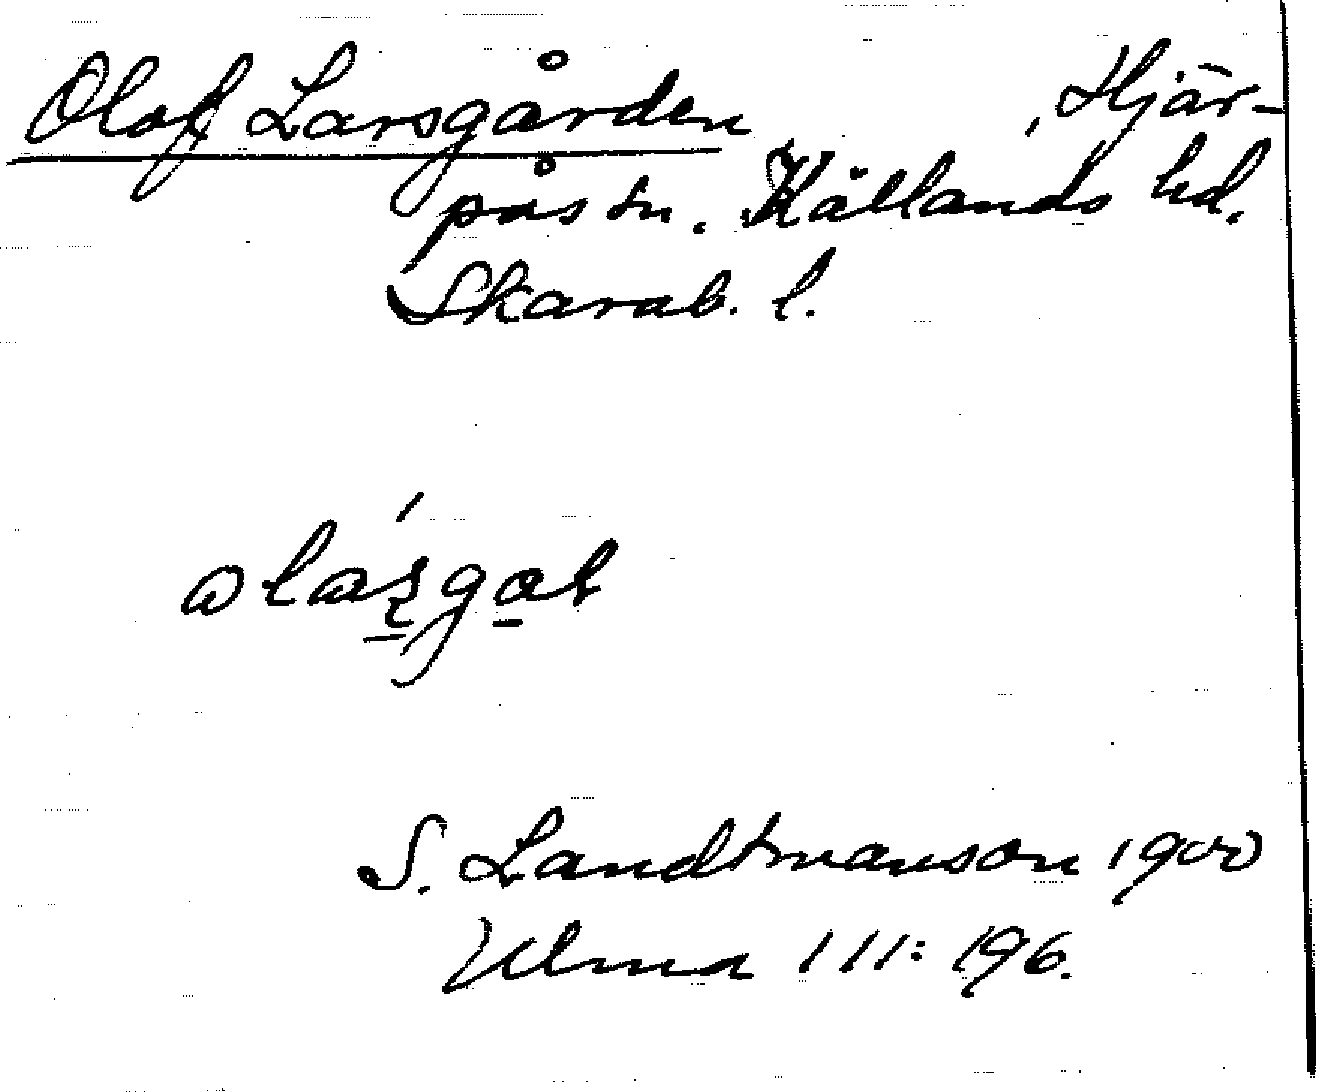 Olof Larsgården , Hjär-
pås sn. Kållands hd.
Skarab. l.
S. Landtmanson 1900
Ulma 111: 196.